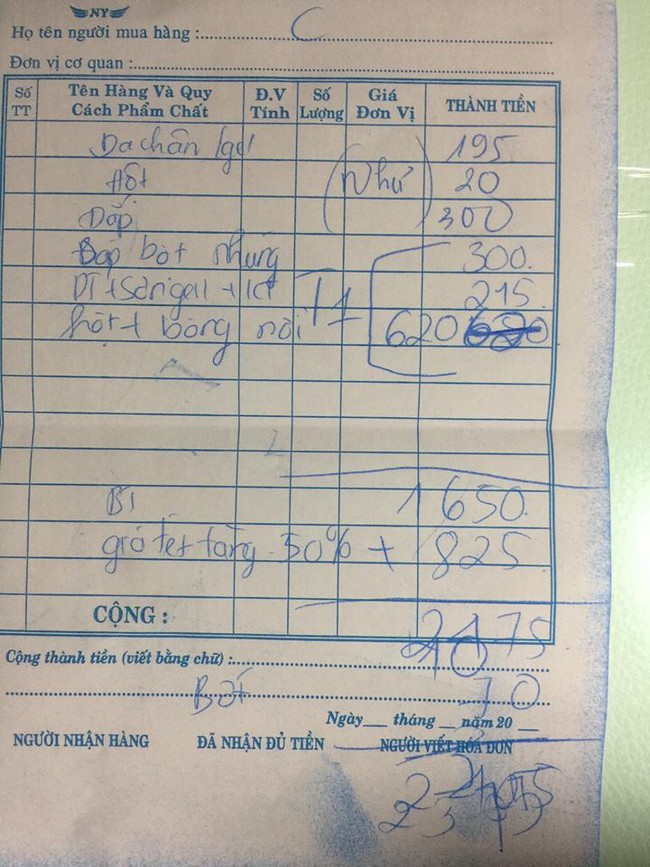 NY
Họ tên người mua hàng : C
Đơn vị cơ quan :
Số TT Tên Hàng Và Quy Cách Phẩm Chất Đ.V Tính Số Lượng Giá Đơn Vị THÀNH TIỀN
Da chân /gel 195
Hớt (Như) 20
Dắp 300
Đắp bột nhung 300
DT+Sơn gel + 215
hớt bông nổi 620
1650
giá tết tăng 50% + 825
CỘNG : 2475
Cộng thành tiền (viết bằng chữ) : 10
Bớt
Ngày tháng năm 20
NGƯỜI NHẬN HÀNG ĐÃ NHẬN ĐỦ TIỀN NGƯỜI VIẾT HÓA ĐƠN